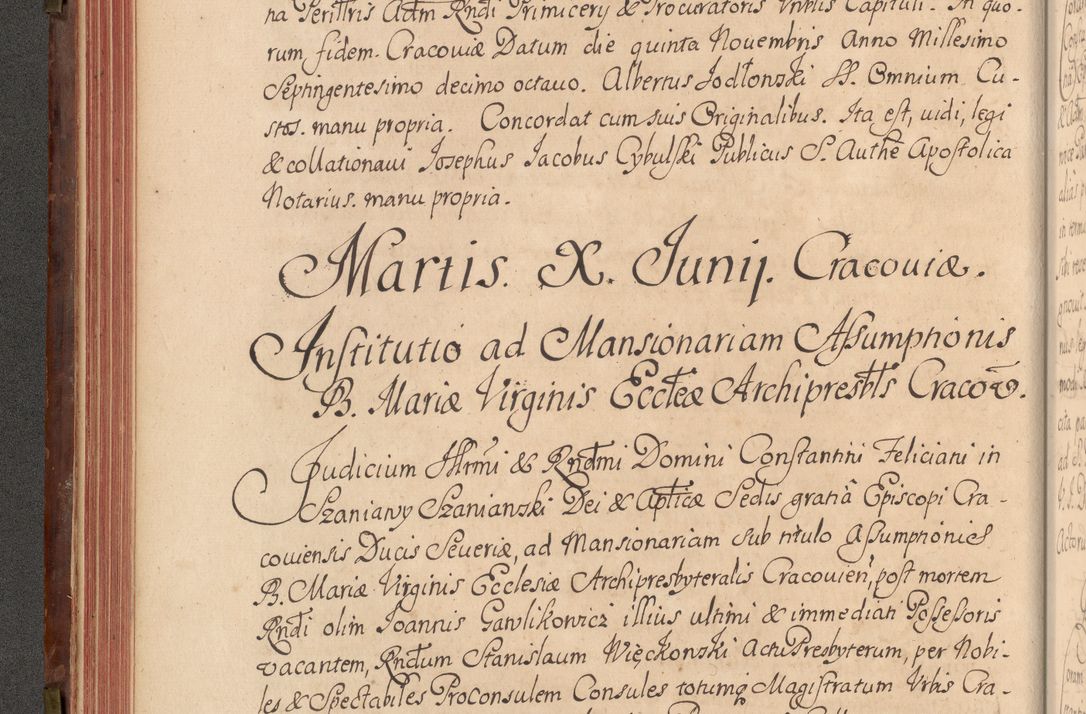 na Perillris Adm Rndi Primicery & Procuratoris Vnblis Capituli. In quo-
rum fidem. Cracouiæ Datum die quinta Nouembris Anno Millesimo
Septingentesimo decimo octauo. Albertus Jodłonski SS. Omnium Cu-
stos. manu propria. Concordat cum suis Originalibus. Ita est, uidi, legi
& collationaui Josephus Jacobus Cybulski Publicus S. Authē Apostolica
Notarius. manu propria.
Martis. X. Junij. Cracouiæ.
Institutio ad Mansionariam Assumptionis
B. Mariæ Virginis Eccleæ Archipresbtls Cracov̄.
Judicium Illrmi & Rndmi Domini Constantini Feliciani in
Szaniawy Szanianski Dei & Aplicæ Sedis gratiâ Episcopi Cra-
couiensis Ducis Seueriæ, ad Mansionariam sub titulo Assumptionis
B. Mariæ Virginis Ecclesiæ Archipresbyteralis Cracouien', post mortem
Rndi olim Joannis Gawlikowicz illius ultimi & immediati Possessoris
vacantem, Rndum Stanislaum Więckonski Actu Presbyterum, per Nobi-
les & Spectabiles Proconsulem Consules totumq Magistratum Vrbis Cra-